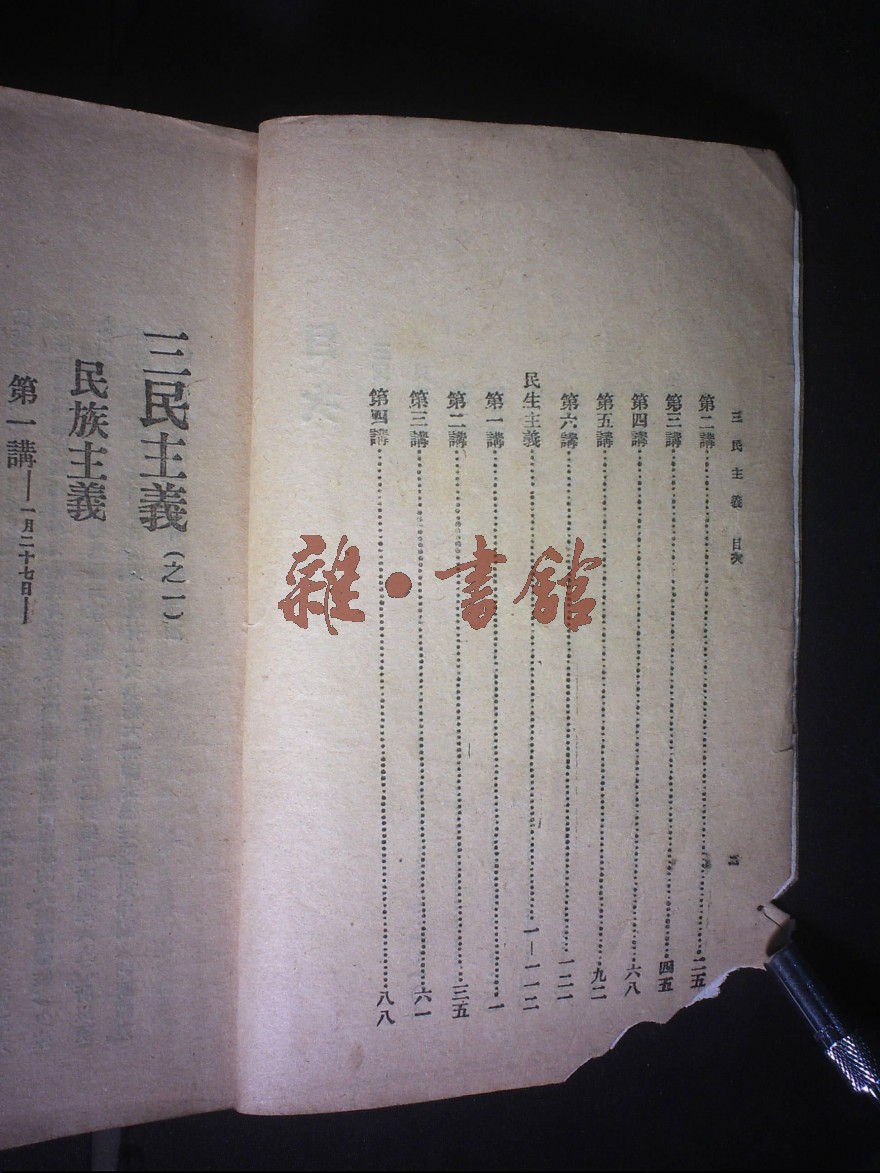 三民主義 目次
第二講……二五
第三講……四五
第四講……六八
第五講……九二
第六講……一二一
民生主義……一—一一二
第一講……一
第二講……三五
第三講……六一
第四講……八八
雜·書館
三民主義(之一)
民族主義
第一講—一月二十七日—